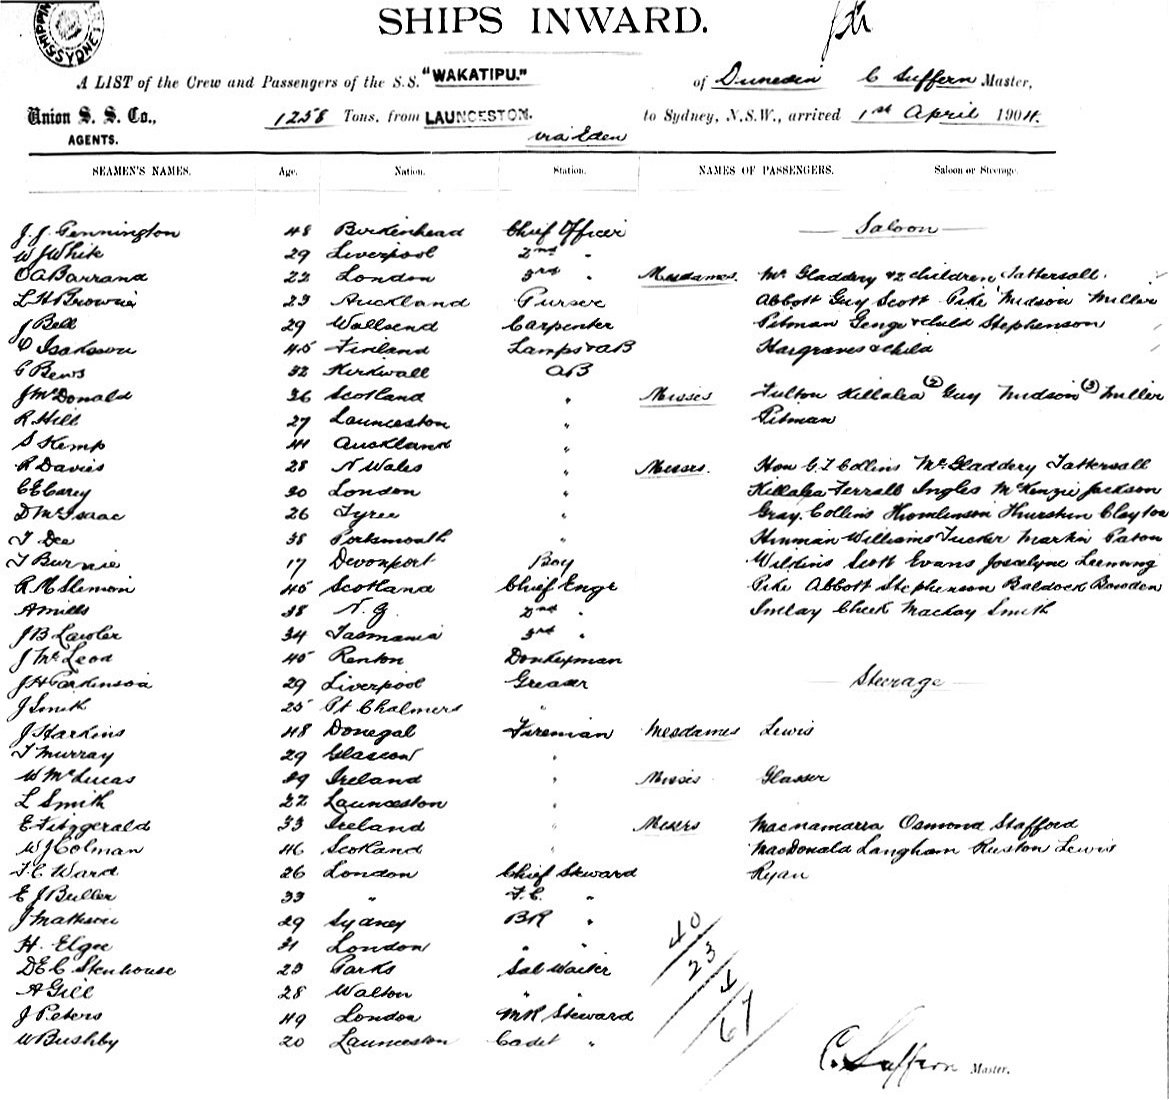 SHIPPING SYDNEY
SHIPS INWARD.
A LIST of the Crew and Passengers of the S.S. "WAKATIPU." of Dunedin C Suffern Master,
Union S. S. Co., 1258 Tons, from LAUNCESTON. to Sydney, N.S.W., arrived 1st April 1904.
AGENTS. via Eden
SEAMEN'S NAMES. Age. Nation. Station. NAMES OF PASSENGERS. Saloon or Steerage.
J. J. Pennington 48 Birkenhead Chief Officer Saloon
W J White 29 Liverpool 2nd "
O A Barrand 22 London 3rd " Mesdames. McGladdery & 2 children Tattersall
L H Browne 23 Auckland Purser Abbott Guy Scott Pike Midson Miller
J Bell 29 Wallsend Carpenter Pitman Genge & child Stephenson
Isaksson 45 Finland Lamps & AB Hargraves & child
C Bews 32 Kirkwall AB
J McDonald 36 Scotland " Misses Fulton Killalea (2) Guy Midson (3) Miller
R Hill 27 Launceston " Pitman
S Kemp 41 Auckland "
R Davies 28 N Wales " Messrs. Hon G. T. Collins McGladdery Tattersall
C E Carey 30 London " Killalea Ferrall Ingles McKenzie Jackson
D McIsaac 26 Tyree " Gray. Collins Thomlinson Clayton
T Dee 38 Portsmouth " Hinman Williams Tucker Martin Paton
T Burnie 17 Devonport Boy Wilkins Scott Evans Joscelyne Leeming
R McSlemon 45 Scotland Chief Engr Pike Abbott Stephenson Baldock Bowden
A Mills 38 N. Z. 2nd " Imlay Cheek Mackay Smith
J B Lawler 34 Tasmania 3rd "
J McLeod 45 Renton Donkeyman
J H Parkinson 29 Liverpool Greaser Steerage
J Smith 25 Pt Chalmers "
J Harkins 48 Donegal Fireman Mesdames Lewis
T Murray 29 Glasgow "
W McLucas 39 Ireland " Misses Glasser
L Smith 22 Launceston "
E Fitzgerald 33 Ireland " Messrs Macnamarra Osmond Stafford
W J Colman 46 Scotland " MacDonald Langham Ruston Lewis
F. C. Ward 26 London Chief Steward Ryan
E J Buller 33 " F. C. "
J Mathson 29 Sydney BR "
H. Elgie 31 London " "
D E C Stenhouse 23 Parks Sal Waiter
A Gill 28 Walton " "
J Peters 49 London MR Steward
W Bushby 20 Launceston Cadet "
40
23
4
67
C. Suffern Master.